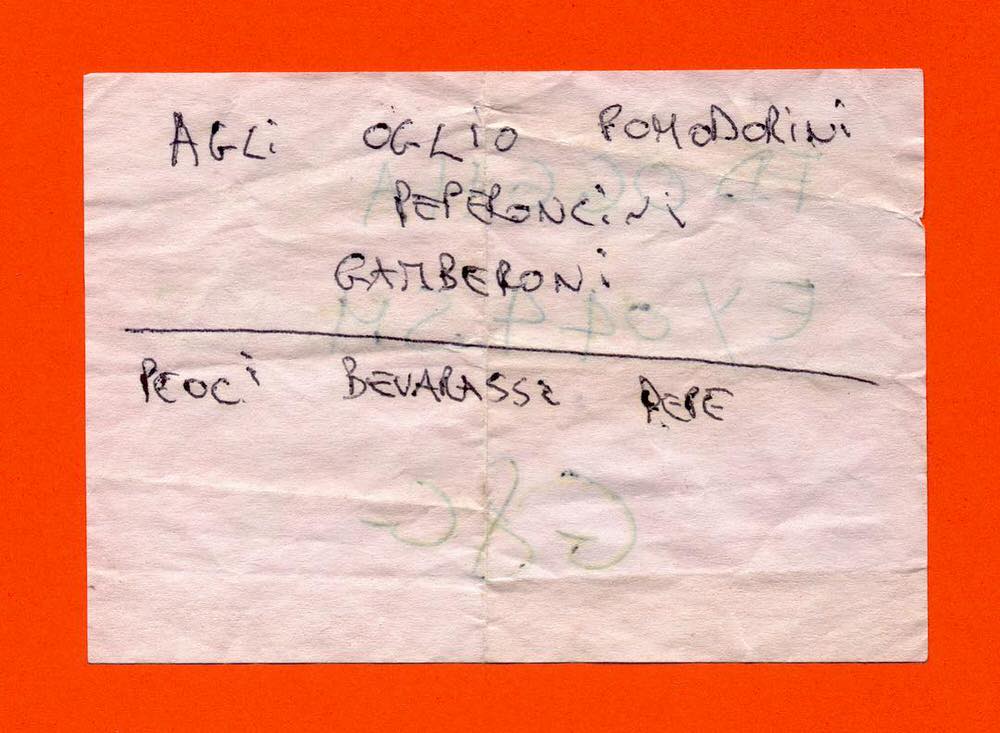 AGLi OGLIO POMODORINi
PEPERONCiNi
GAMBERONi
PEOCi BEVARASSE PEPE